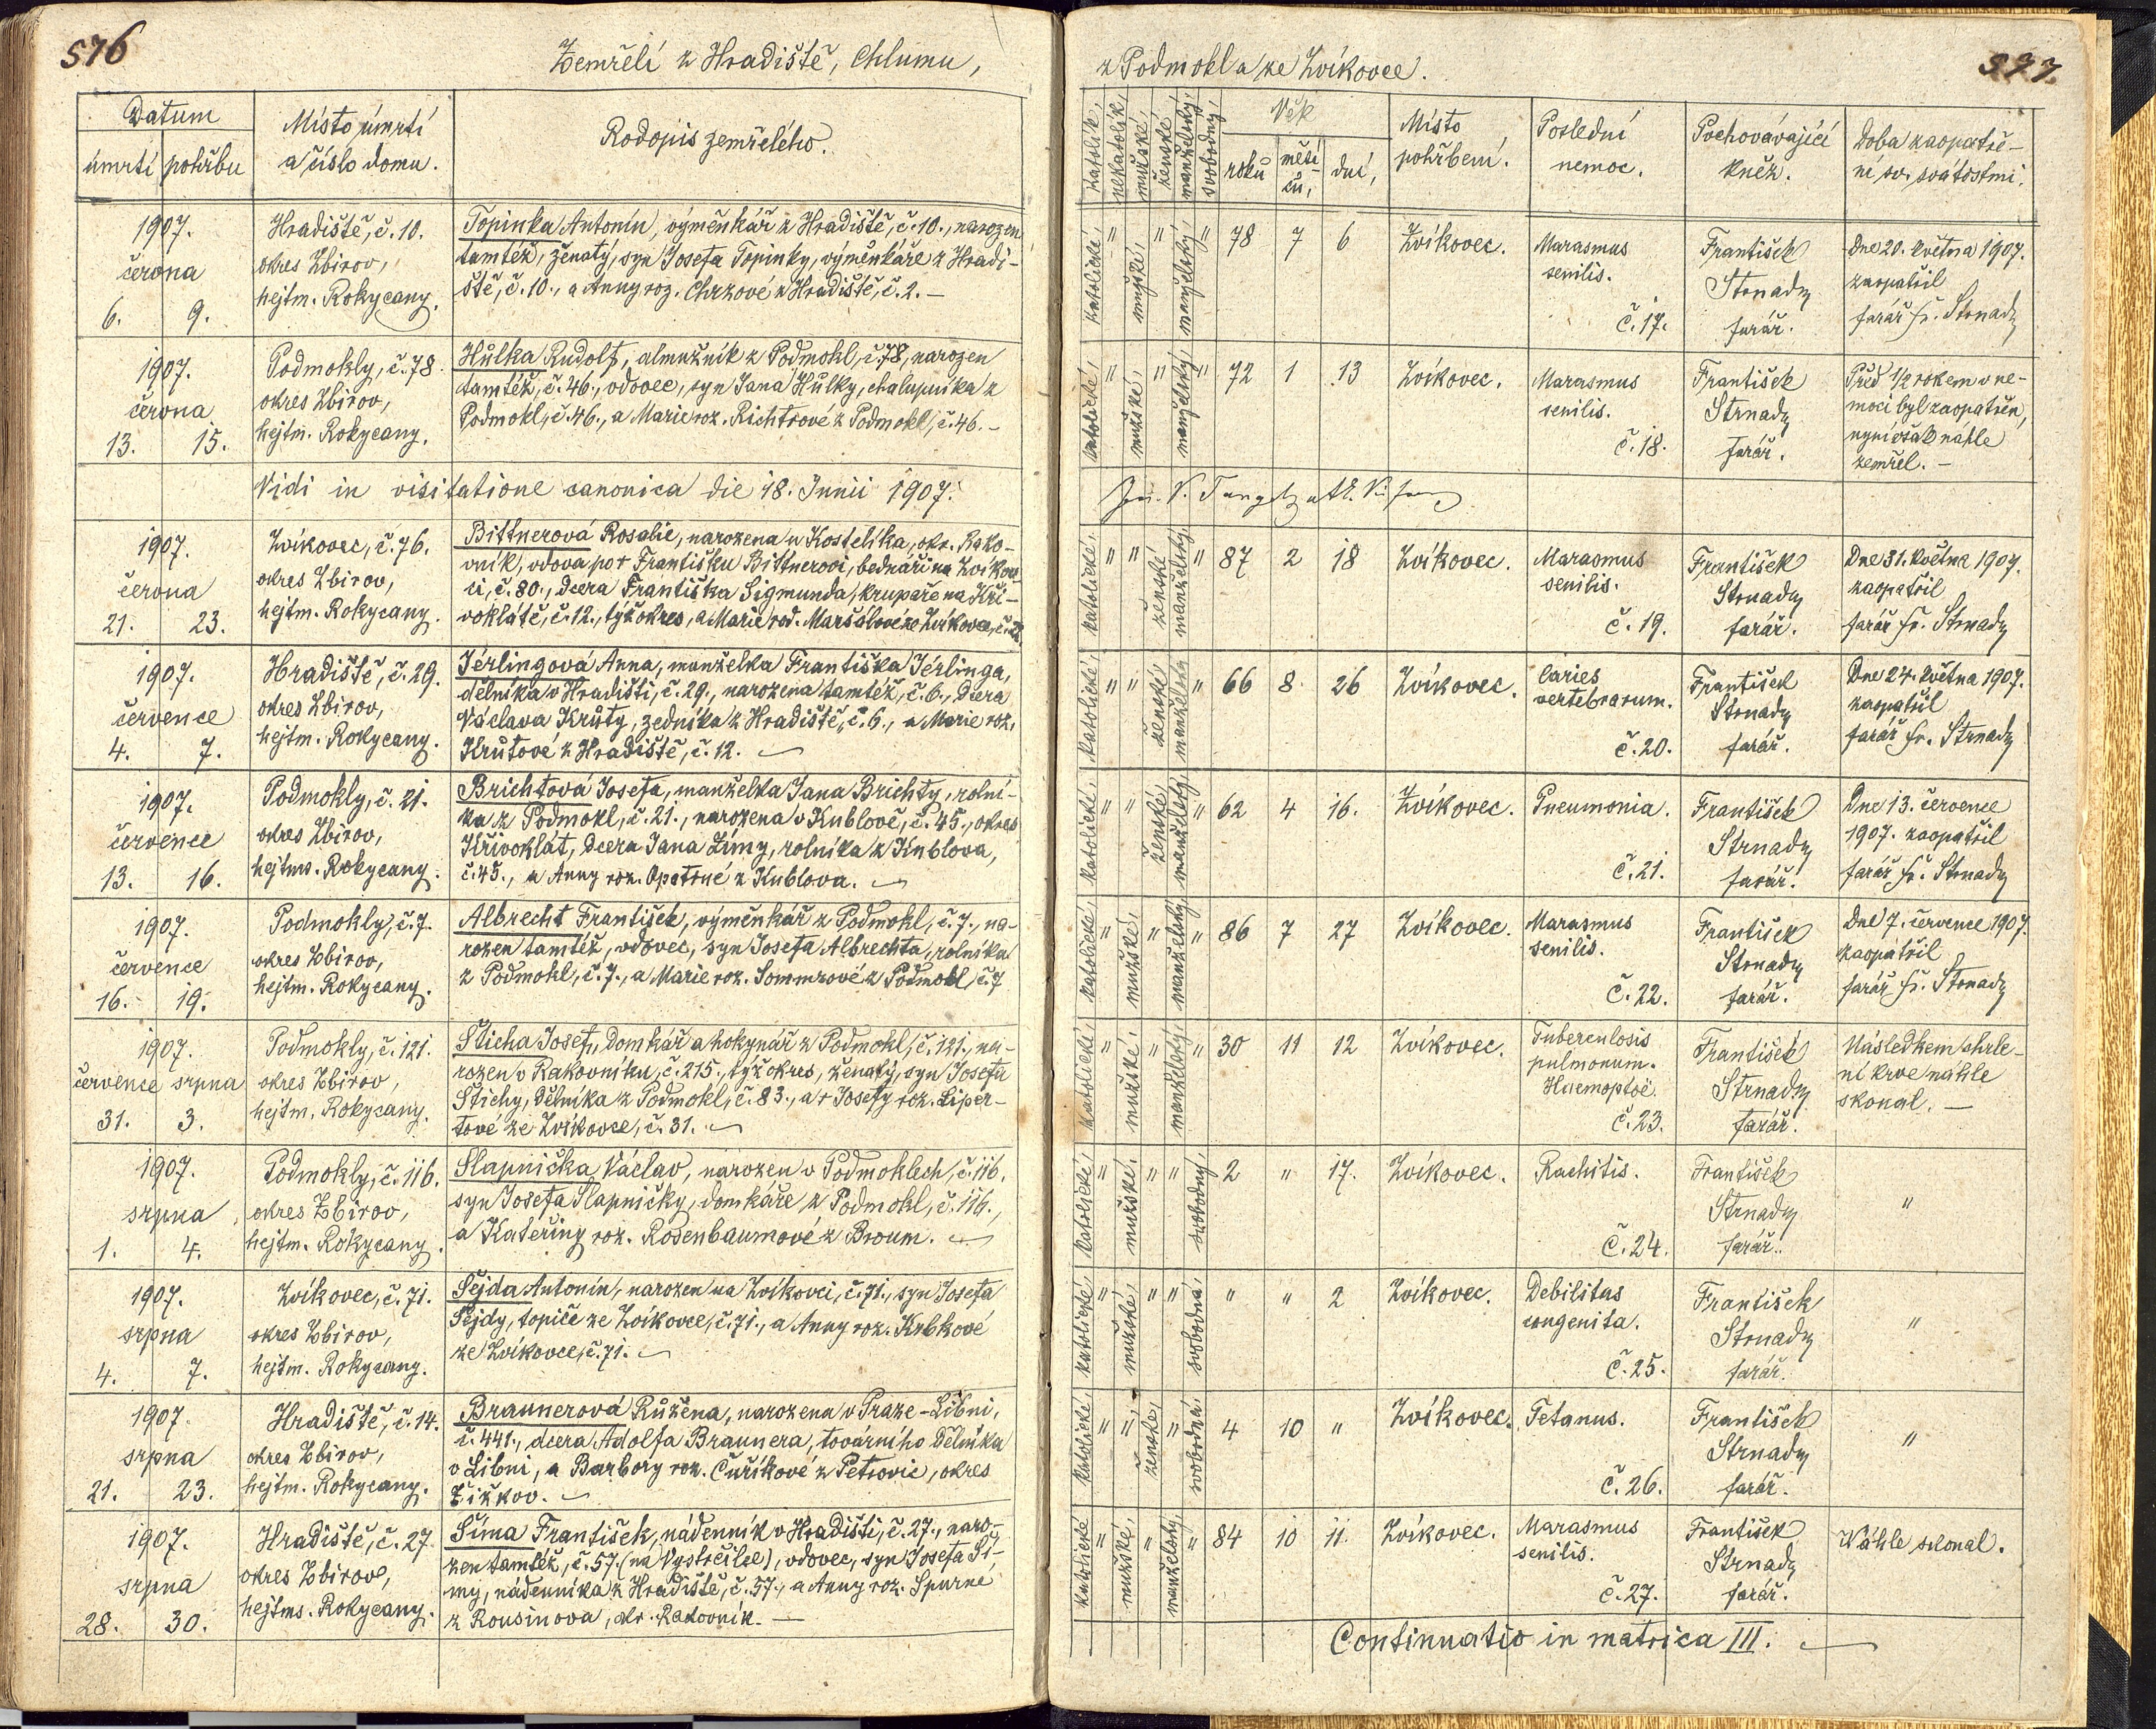 576
Zemřelí z Hradiště, Chlumu,
Datum
úmrtí pohřbu
Místo úmrtí
a číslo domu.
Rodopis zemřelého.
1907.
června
6. 9.
Hradiště, č. 10.
okres Zbirov,
hejtm. Rokycany.
Topinka Antonín, výměnkář z Hradiště, č. 10., narozen
tamtéž, ženatý, syn Josefa Topinky, výměnkáře z Hradi-
ště, č. 10., a Anny roz. Chrzové z Hradiště, č. 2. —
1907.
června
13. 15.
Podmokly, č. 78.
okres Zbirov,
hejtm. Rokycany.
Hůlka Rudolf, almužník z Podmokl, č. 78, narozen
tamtéž, č. 46., vdovec, syn Jana Hůlky, chalupníka z
Podmokl, č. 46., a Marie roz. Richtrové z Podmokl, č. 46. —
Vidi in visitatione canonica die 18. Junii 1907.
1907.
června
21. 23.
Zvíkovec, č. 76.
okres Zbirov,
hejtm. Rokycany.
Bittnerová Rosalie, narozena u Kostelíka, okr. Rako-
vník, vdova po † Františku Bittnerovi, bednáři na Zvíkov-
ci, č. 80., dcera Františka Sigmunda, krupaře na Kři-
voklátě, č. 12., týž okres, a Marie rod. Maršálové ze Zvíkovce, č.
1907.
července
4. 7.
Hradiště, č. 29.
okres Zbirov,
hejtm. Rokycany.
Jérlingová Anna, manželka Františka Jérlinga,
dělníka v Hradišti, č. 29., narozena tamtéž, č. 6., dcera
Václava Krůty, zedníka z Hradiště, č. 6., a Marie roz.
Krůtové z Hradiště, č. 12. —
1907.
července
13. 16.
Podmokly, č. 21.
okres Zbirov,
hejtms. Rokycany.
Brichtová Josefa, manželka Jana Brichty, rolní-
ka z Podmokl, č. 21., narozena v Kublově, č. 45., okres
Křivoklát, dcera Jana Zímy, rolníka z Kublova,
č. 45., a Anny roz. Opatrné z Kublova. —
1907.
července
16. 19.
Podmokly, č. 7.
okres Zbirov,
hejtm. Rokycany.
Albrecht František, výměnkář z Podmokl, č. 7., na-
rozen tamtéž, vdovec, syn Josefa Albrechta, rolníka
z Podmokl, č. 7., a Marie roz. Sommrové z Podmokl, č. 7
1907.
července srpna
31. 3.
Podmokly, č. 121.
okres Zbirov,
hejtm. Rokycany.
Šticha Josef, domkář a hokynář z Podmokl, č. 121., na-
rozen v Rakovníku, č. 215., týž okres, ženatý, syn Josefa
Štichy, dělníka z Podmokl, č. 83., a † Josefy roz. Liper-
tové ze Zvíkovce, č. 31. —
1907.
srpna
1. 4.
Podmokly, č. 116.
okres Zbirov,
hejtm. Rokycany.
Slapnička Václav, narozen v Podmoklech, č. 116.
syn Josefa Slapničky, domkáře z Podmokl, č. 116.,
a Kateřiny roz. Rosenbaumové z Broum. —
1907.
srpna
4. 7.
Zvíkovec, č. 71.
okres Zbirov,
hejtm. Rokycany.
Sejda Antonín, narozen na Zvíkovci, č. 71., syn Josefa
Sejdy, topiče ze Zvíkovce, č. 71., a Anny roz. Krbkové
ze Zvíkovce, č. 71. —
1907.
srpna
21. 23.
Hradiště, č. 14.
okres Zbirov,
hejtm. Rokycany.
Braunerová Růžena, narozena v Praze-Libni,
č. 441., dcera Adolfa Braunera, továrního dělníka
v Libni, a Barbory roz. Čuříkové z Petrovic, okres
Žižkov. —
1907.
srpna
28. 30.
Hradiště, č. 27.
okres Zbirov,
hejtms. Rokycany.
Šíma František, nádenník v Hradišti, č. 27., naro-
zen tamtéž, č. 57. (na Vystrčilce), vdovec, syn Josefa Ší-
my, nádenníka z Hradiště, č. 57., a Anny roz. Spurné
z Rousínova, okr. Rakovník. —
577.
z Podmokl a ze Zvíkovce.
katolík, nekatolík, mužské, ženské, manželský, svobodný,
Věk
roků měsí-
ců, dní,
Místo
pohřbení.
Poslední
nemoc.
Pochovávající
kněz.
Doba zaopatře-
ní sv. svátostmi.
katolické, " mužské, " manželský, " 78 7 6 Zvíkovec.
Marasmus
senilis.
č. 17.
František
Strnady
farář.
Dne 20. května 1907.
zaopatřil
farář Fr. Strnady
katolické, " mužské, " manželský, " 72 1 13 Zvíkovec.
Marasmus
senilis.
č. 18.
František
Strnady
farář.
Před 1/2 rokem v ne-
moci byl zaopatřen,
nyní však náhle
zemřel. —
katolické, " " ženské manželský, " 87 2 18 Zvíkovec.
Marasmus
senilis.
č. 19.
František
Strnady
farář.
Dne 31. května 1907.
zaopatřil
farář Fr. Strnady
katolické, " " ženské manželská " 66 8 26 Zvíkovec.
Caries
vertebrarum.
č. 20.
František
Strnady
farář.
Dne 24. května 1907.
zaopatřil
farář Fr. Strnady
katolické, " " ženské manželský, " 62 4 16. Zvíkovec.
Pneumonia.
č. 21.
František
Strnady
farář.
Dne 13. července
1907. zaopatřil
farář Fr. Strnady
katolické, " mužské, " manželský, " 86 7 27 Zvíkovec.
Marasmus
senilis.
č. 22.
František
Strnady
farář.
Dne 7. července 1907.
zaopatřil
farář Fr. Strnady
katolické, " mužské, " manželský, " 30 11 12 Zvíkovec.
Tuberculosis
pulmonum.
Haemoptoë.
č. 23.
František
Strnady
farář.
Následkem chrle-
ní krve náhle
skonal. —
katolické, " mužské, " " svobodný, 2 " 17. Zvíkovec.
Rachitis.
č. 24.
František
Strnady
farář.
"
katolické " mužské, " " svobodná, " " 2 Zvíkovec.
Debilitas
congenita.
č. 25.
František
Strnady
farář.
"
katolické, " " ženské, " svobodná. 4 10 " Zvíkovec.
Tetanus.
č. 26.
František
Strnady
farář.
"
katolické " mužské, " manželský, " 84 10 11. Zvíkovec.
Marasmus
senilis.
č. 27.
František
Strnady
farář.
Náhle skonal.
Continuatio in matrica III. —